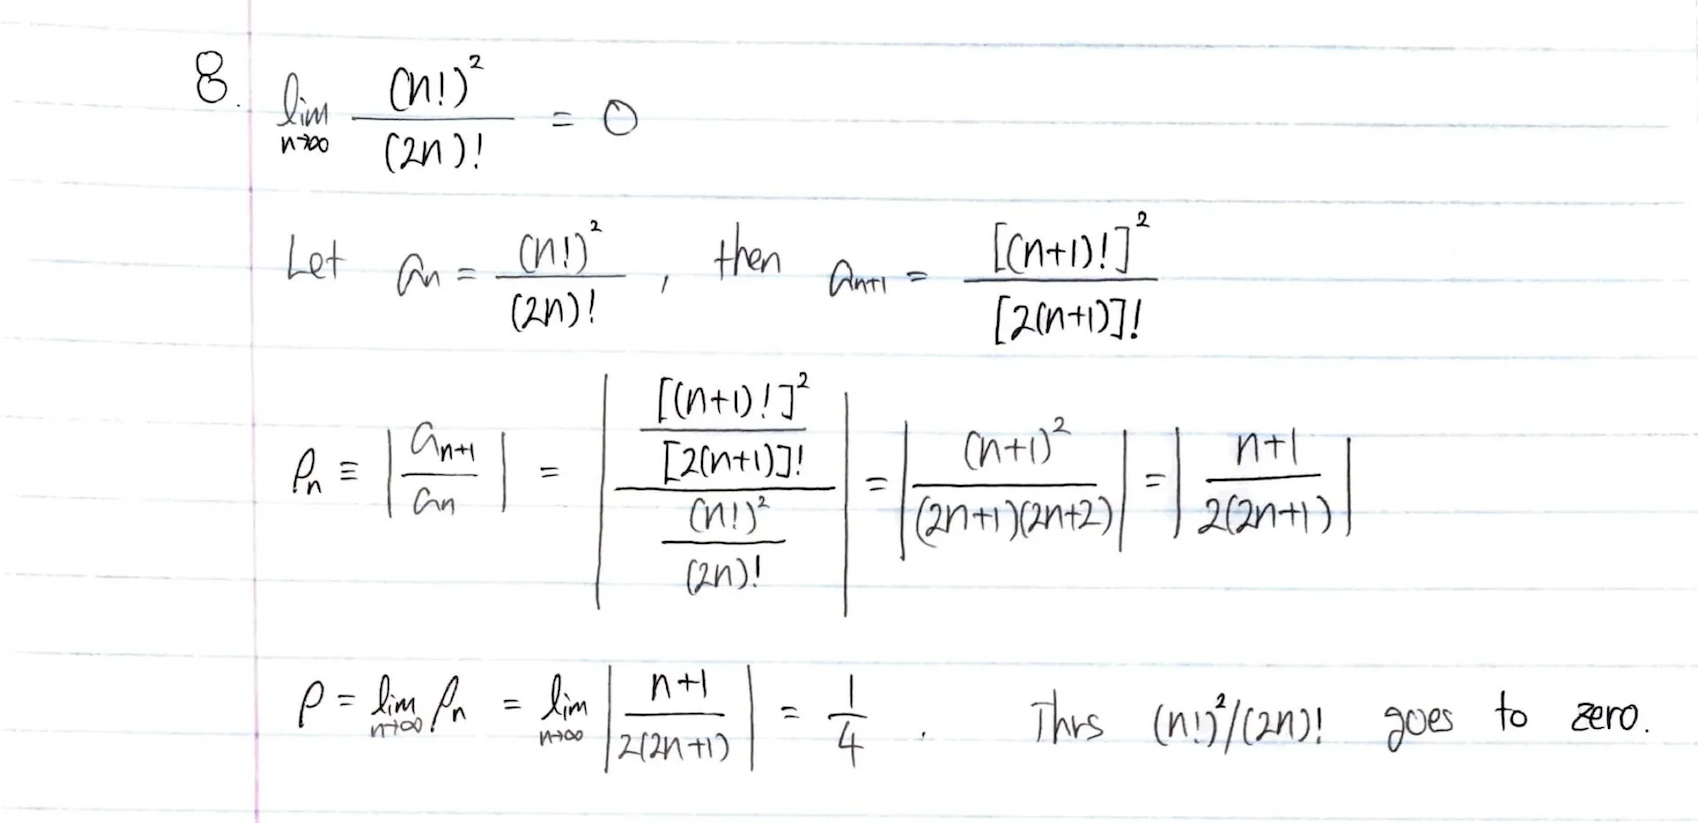 8. lim n→∞ (n!)² / (2n)! = 0
Let aₙ = (n!)² / (2n)! , then aₙ₊₁ = [(n+1)!]² / [2(n+1)]!
ρₙ ≡ | aₙ₊₁ / aₙ | = | ([(n+1)!]² / [2(n+1)]!) / ((n!)² / (2n)!) | = | (n+1)² / (2n+1)(2n+2) | = | n+1 / 2(2n+1) |
ρ = lim n→∞ ρₙ = lim n→∞ | n+1 / 2(2n+1) | = 1/4 . Thus (n!)²/(2n)! goes to zero.